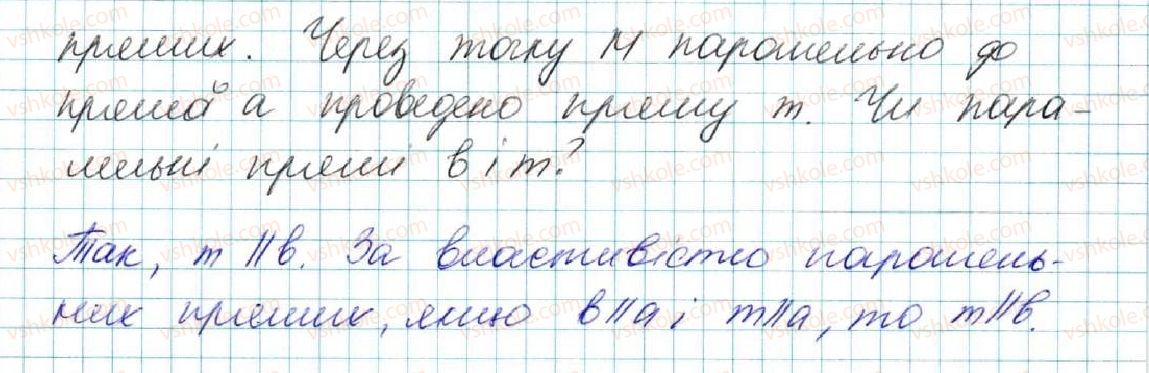 прямих. Через точку М паралельно до
прямої а проведено пряму m. Чи пара-
лельні прямі в і m?
Так, m || в. За властивістю паралель-
них прямих, якщо в || а і m || а, то m || в.